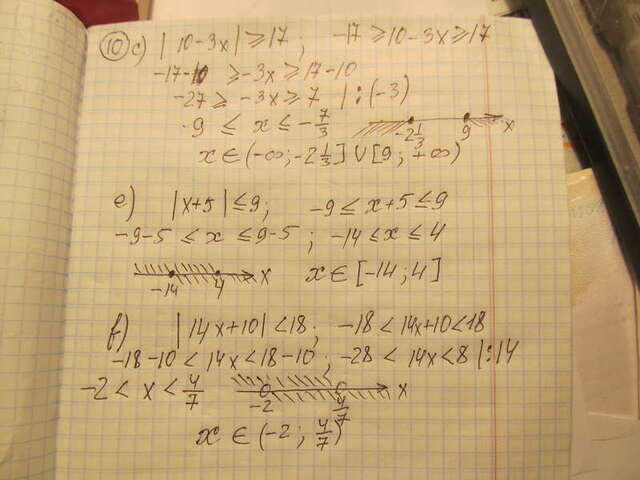 10 c) |10-3x| ≥ 17; -17 ≥ 10-3x ≥ 17
-17-10 ≥ -3x ≥ 17-10
-27 ≥ -3x ≥ 7 | :(-3)
9 ≤ x ≤ -7/3
-2 1/3 9 x
x ∈ (-∞; -2 1/3] ∪ [9; +∞)
e) |x+5| ≤ 9; -9 ≤ x+5 ≤ 9
-9-5 ≤ x ≤ 9-5; -14 ≤ x ≤ 4
-14 4 x x ∈ [-14; 4]
f) |14x+10| < 18; -18 < 14x+10 < 18
-18-10 < 14x < 18-10; -28 < 14x < 8 |:14
-2 < x < 4/7 -2 4/7 x
x ∈ (-2; 4/7)